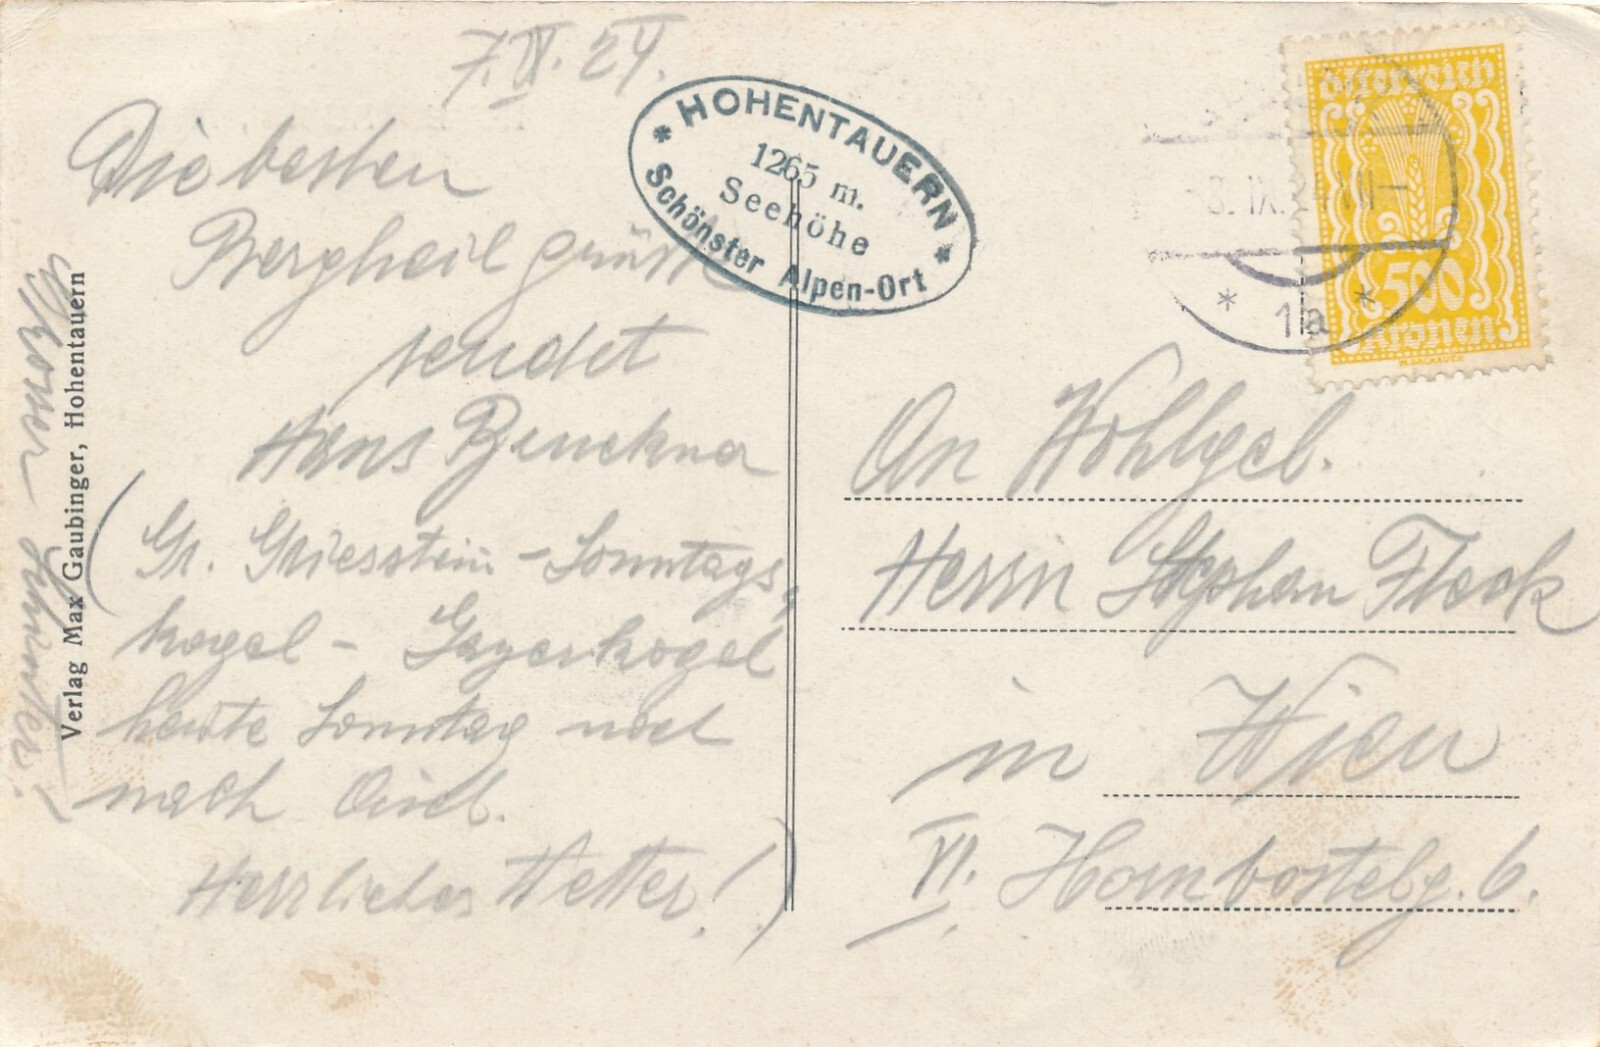 7. IX. 24.
Die besten
Bergheil grüße
sendet
Hans Bruckner
(Gr. Griesstein - Sonntags,
kogel - Geyerkogel
heute Sonntag noch
nach
Herrliches Wetter!)
Verlag Max Gaubinger, Hohentauern
HOHENTAUERN
1265 m.
Seehöhe
Schönster Alpen-Ort
Österreich
500
Kronen
8. IX. 24 VII-
* 1a *
An Wohlgeb.
Herrn Stephan Fleck
in Wien
VI. Hornbostelg. 6.